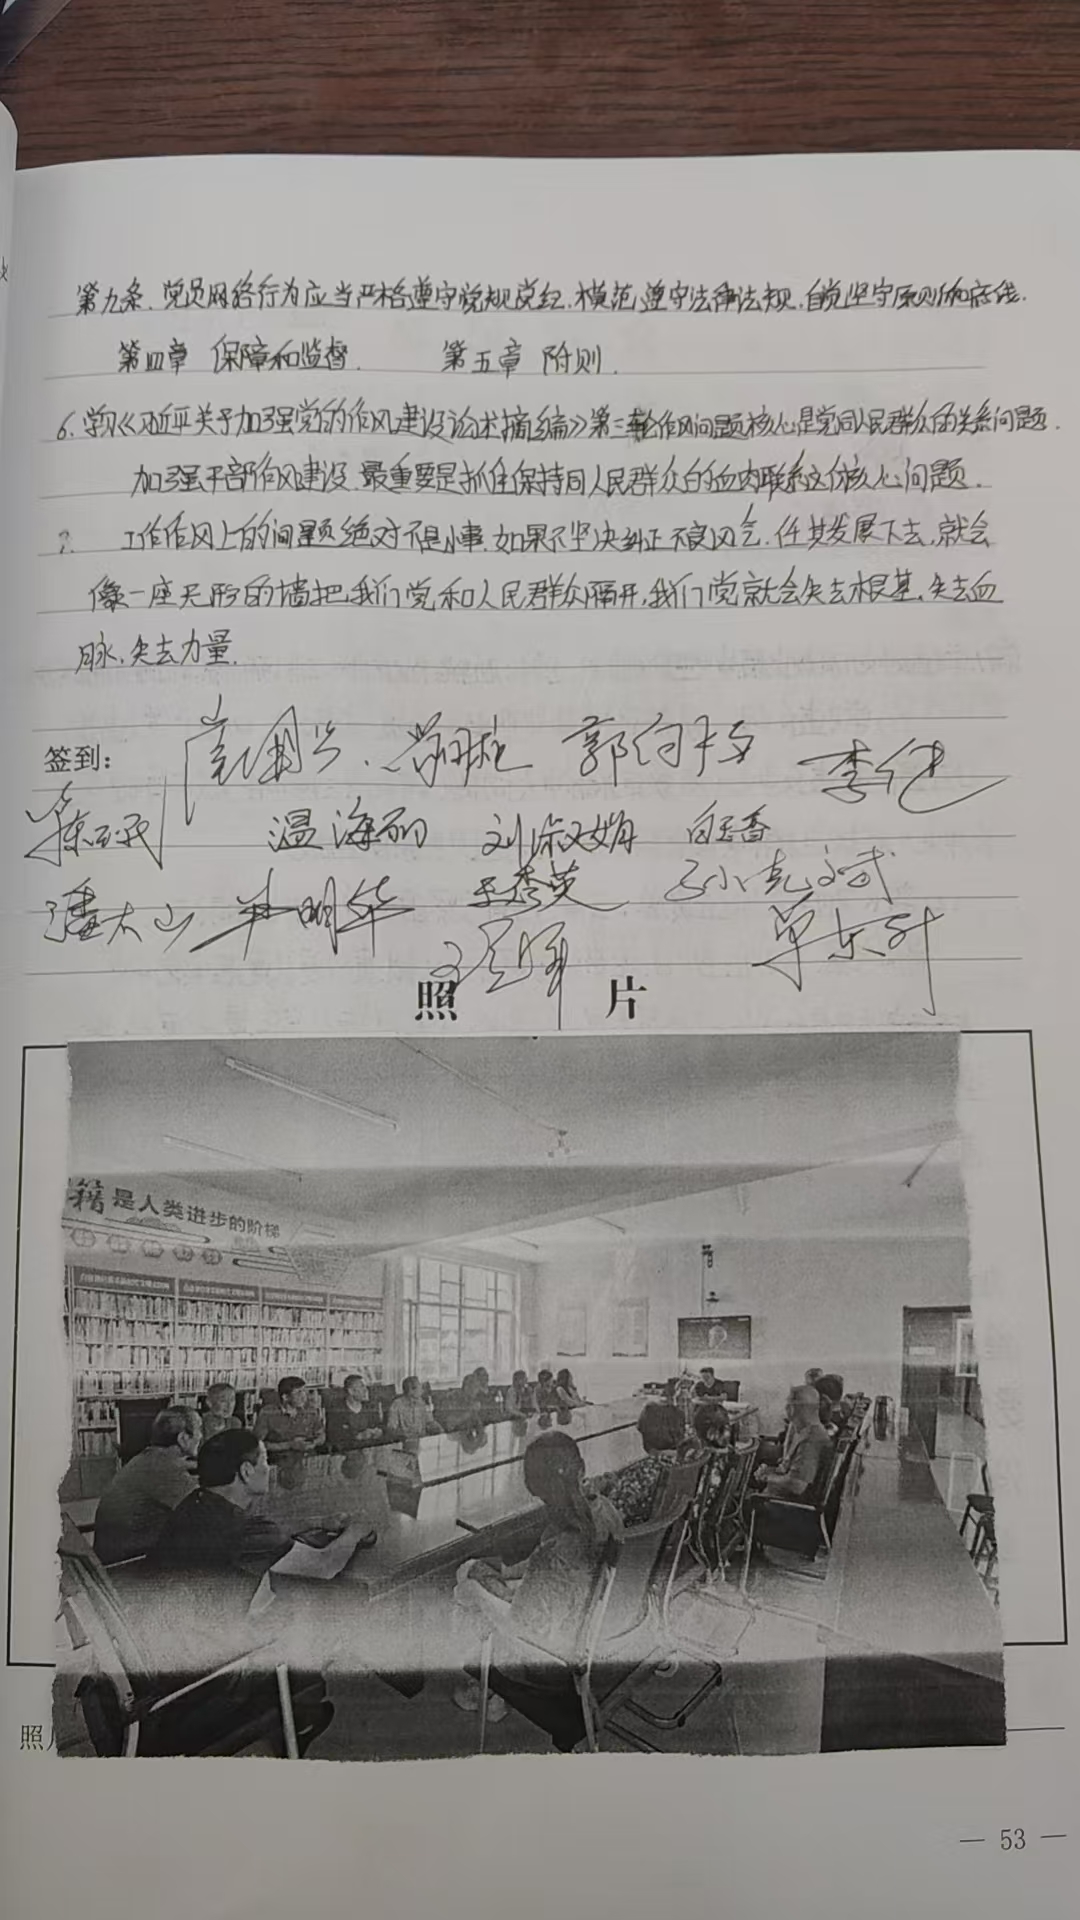 第九条.党员网络行为应当严格遵守党规党纪.模范遵守法律法规.自觉坚守原则和底线.
第四章 保障和监督. 第五章 附则.
6.学习《习近平关于加强党的作风建设论述摘编》第三章作风问题核心是党同人民群众的关系问题.
加强干部作风建设.最重要是抓住保持同人民群众的血肉联系这个核心问题.
7. 工作作风上的问题绝对不是小事.如果不坚决纠正不良风气.任其发展下去.就会
像一座无形的墙把我们党和人民群众隔开,我们党就会失去根基.失去血
脉.失去力量.
签到: 郭向文 李
温海丽 刘淑娟 白玉香
潘太山 尹明华 王秀英
单东升
照 片
籍是人类进步的阶梯
照
— 53 —